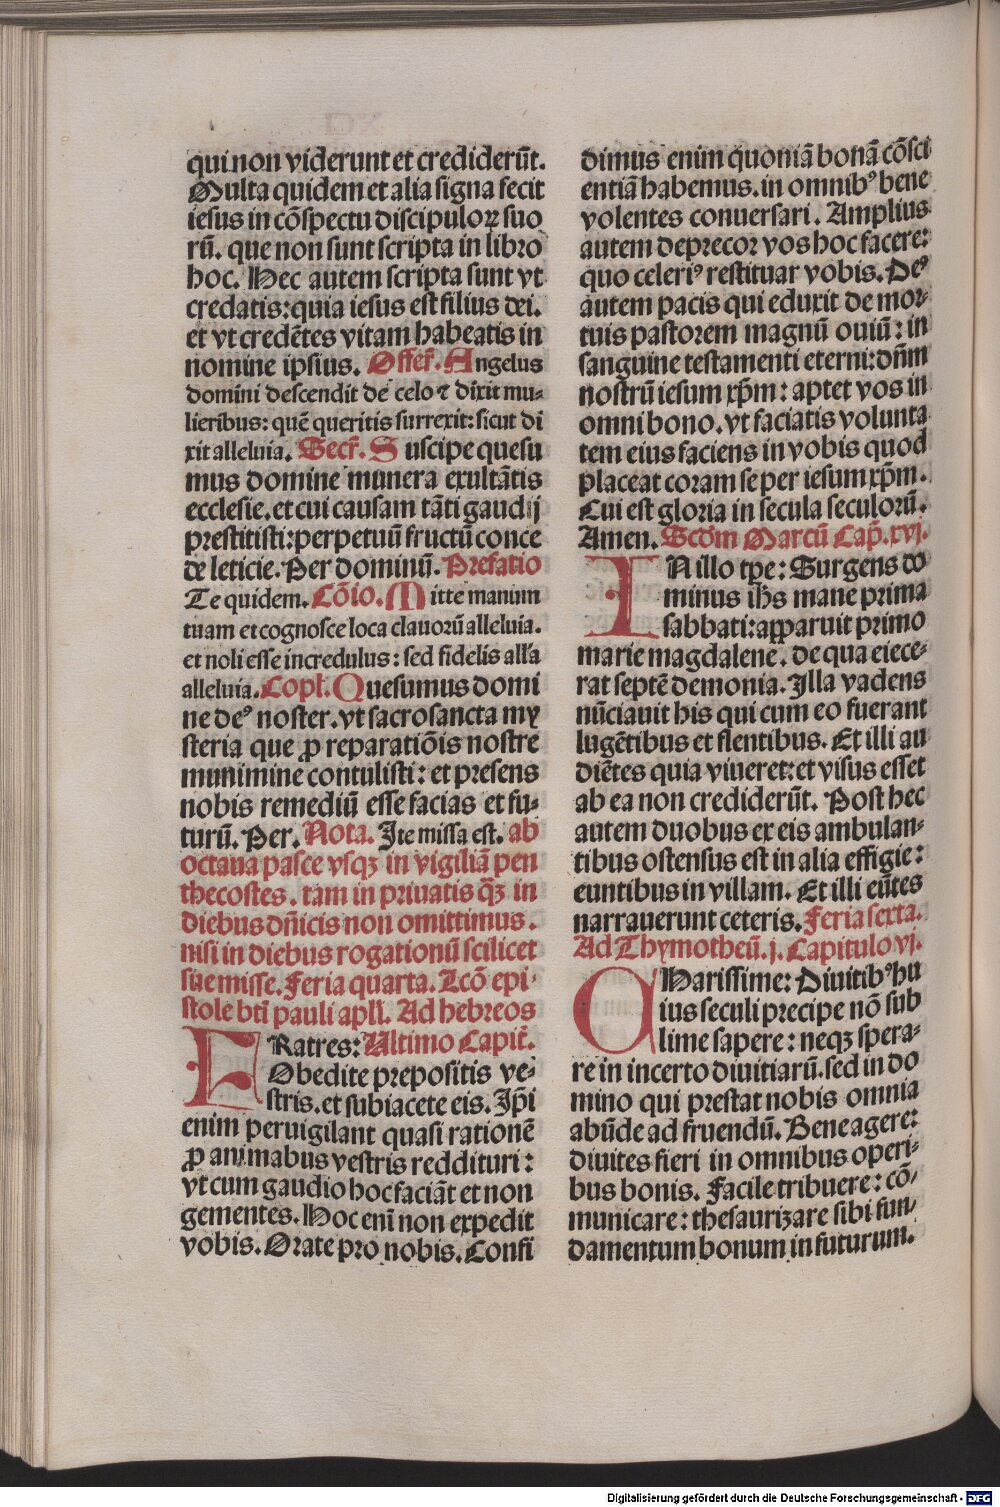 qui non viderunt et crediderūt.
Multa quidem et alia signa fecit
iesus in cōspectu discipuloꝝ suo
rū. que non sunt scripta in libro
hoc. Hec autem scripta sunt vt
credatis: quia iesus est filius dei.
et vt credētes vitam habeatis in
nomine ipsius. Offer̄. Angelus
domini descendit de celo ⁊ dixit mu-
lieribus: quē queritis surrexit: sicut di
xit alleluia. Secr̄. Suscipe quesu
mus domine munera exultātis
ecclesie. et cui causam tāti gaudij
prestitisti: perpetuū fructū conce
de leticie. Per dominū. Prefatio
Te quidem. Cōio. Mitte manum
tuam et cognosce loca clauorū alleluia.
et noli esse incredulus: sed fidelis all'a
alleluia. Copl̄. Quesumus domi
ne deꝰ noster. vt sacrosancta my
steria que ꝓ reparatiōis nostre
munimine contulisti: et presens
nobis remediū esse facias et fu-
turū. Per. Nota. Ite missa est. ab
octaua pasce vsqꝫ in vigiliā pen
thecostes. tam in priuatis qꝫ̄ in
diebus dn̄icis non omittimus.
nisi in diebus rogationū scilicet
sue misse. Feria quarta. Lcō epi-
stole bt̄i pauli apl̄i. Ad hebreos
FRatres: Ultimo Capit̄.
Obedite prepositis ve-
stris. et subiacete eis. Ip̄i
enim peruigilant quasi rationē
ꝓ animabus vestris reddituri:
vt cum gaudio hoc faciāt et non
gementes. Hoc eni̅ non expedit
vobis. Orate pro nobis. Confi
dimus enim quoniā bonā cōsci
entiā habemus. in omnibꝰ bene
volentes conuersari. Amplius
autem deprecor vos hoc facere:
quo celeriꝰ restituar vobis. Deꝰ
autem pacis qui eduxit de mor-
tuis pastorem magnū ouiū: in
sanguine testamenti eterni: dn̄m
nostrū iesum xp̄m: aptet vos in
omni bono. vt faciatis volunta
tem eius faciens in vobis quod
placeat coram se per iesum xp̄m.
Cui est gloria in secula seculorū.
Amen. Scd̄m Marcū Cap̄. xvj.
IN illo tp̄e: Surgens do
minus ih̄s mane prima
sabbati: apparuit primo
marie magdalene. de qua eiece-
rat septē demonia. Illa vadens
nūciauit his qui cum eo fuerant
lugētibus et flentibus. Et illi au
diētes quia viueret: et visus esset
ab ea non crediderūt. Post hec
autem duobus ex eis ambulan-
tibus ostensus est in alia effigie:
euntibus in villam. Et illi eūtes
narrauerunt ceteris. Feria sexta.
Ad Thymotheū. j. Capitulo vj.
CHarissime: Diuitibꝰ hu
ius seculi precipe nō sub
lime sapere: neqꝫ spera-
re in incerto diuitiarū. sed in do
mino qui prestat nobis omnia
abūde ad fruendū. Bene agere:
diuites fieri in omnibus operi-
bus bonis. Facile tribuere: cō-
municare: thesaurizare sibi fun-
damentum bonum in futurum.
Digitalisierung gefördert durch die Deutsche Forschungsgemeinschaft - DFG